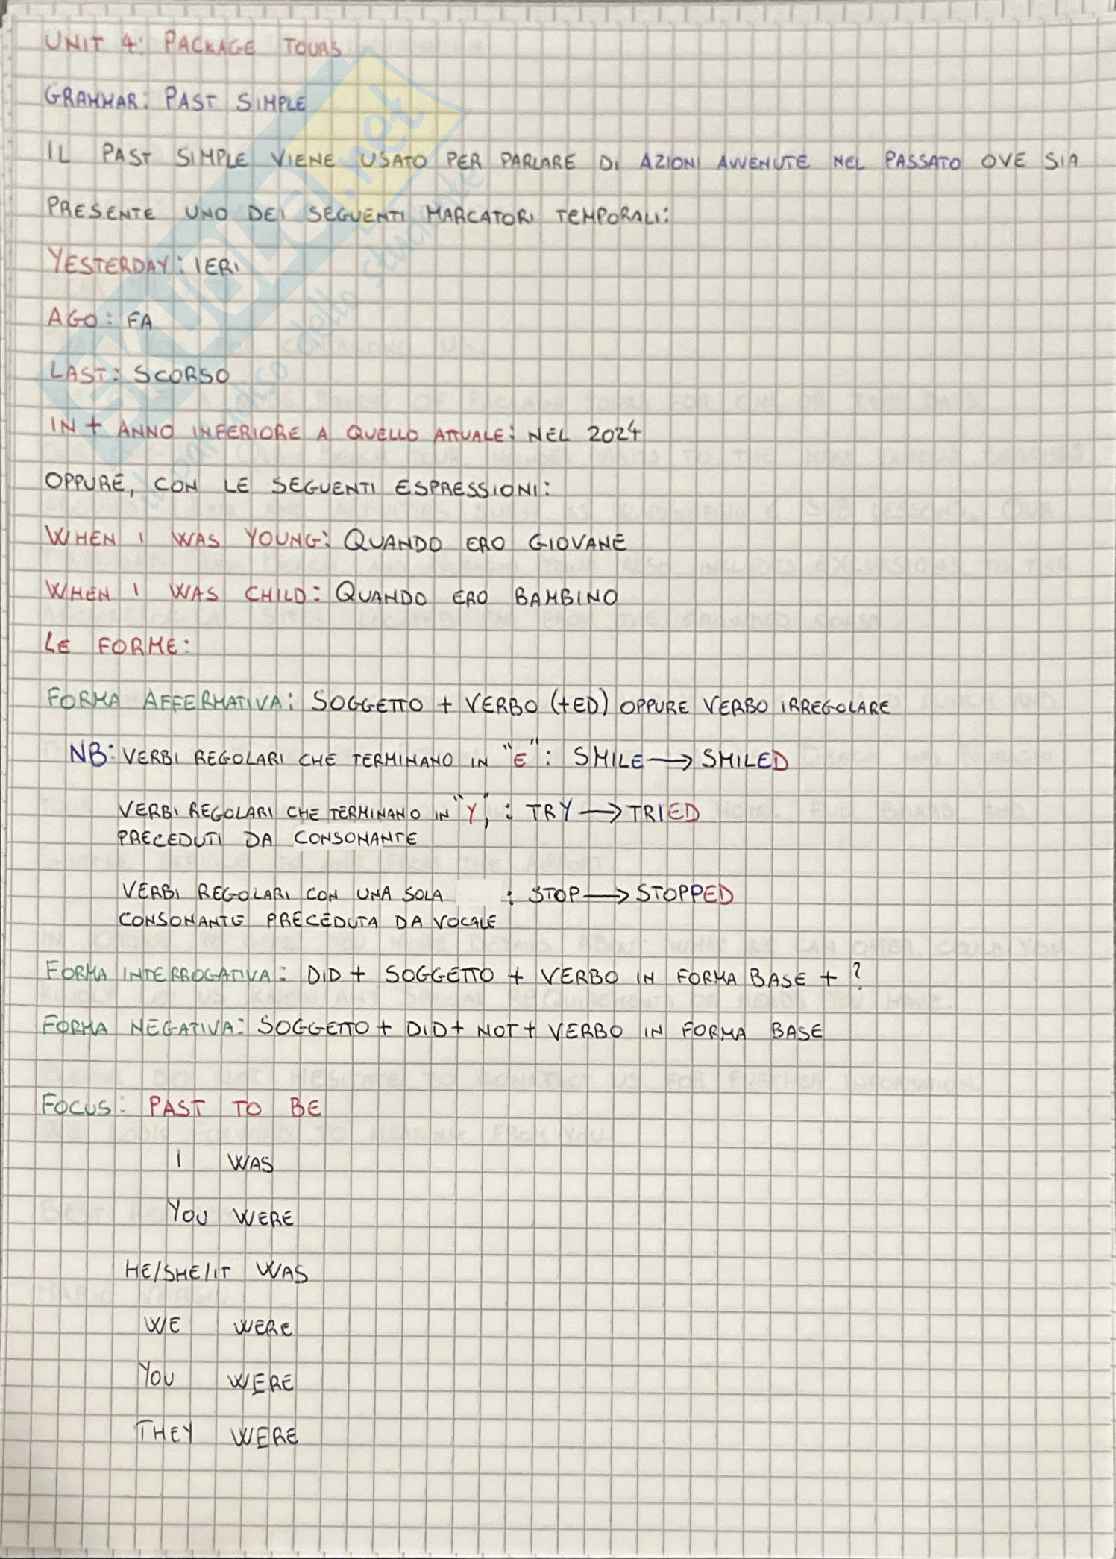 UNIT 4: PACKAGE TOURS
GRAMMAR: PAST SIMPLE
IL PAST SIMPLE VIENE USATO PER PARLARE DI AZIONI AVVENUTE NEL PASSATO OVE SIA
PRESENTE UNO DEI SEGUENTI MARCATORI TEMPORALI:
YESTERDAY: IERI
AGO: FA
LAST: SCORSO
IN + ANNO INFERIORE A QUELLO ATTUALE: NEL 2024
OPPURE, CON LE SEGUENTI ESPRESSIONI:
WHEN I WAS YOUNG: QUANDO ERO GIOVANE
WHEN I WAS CHILD: QUANDO ERO BAMBINO
LE FORME:
FORMA AFFERMATIVA: SOGGETTO + VERBO (+ED) OPPURE VERBO IRREGOLARE
NB: VERBI REGOLARI CHE TERMINANO IN "E": SMILE → SMILED
VERBI REGOLARI CHE TERMINANO IN "Y", : TRY → TRIED
PRECEDUTI DA CONSONANTE
VERBI REGOLARI CON UNA SOLA : STOP → STOPPED
CONSONANTE PRECEDUTA DA VOCALE
FORMA INTERROGATIVA: DID + SOGGETTO + VERBO IN FORMA BASE + ?
FORMA NEGATIVA: SOGGETTO + DID + NOT + VERBO IN FORMA BASE
FOCUS: PAST TO BE
I WAS
YOU WERE
HE/SHE/IT WAS
WE WERE
YOU WERE
THEY WERE